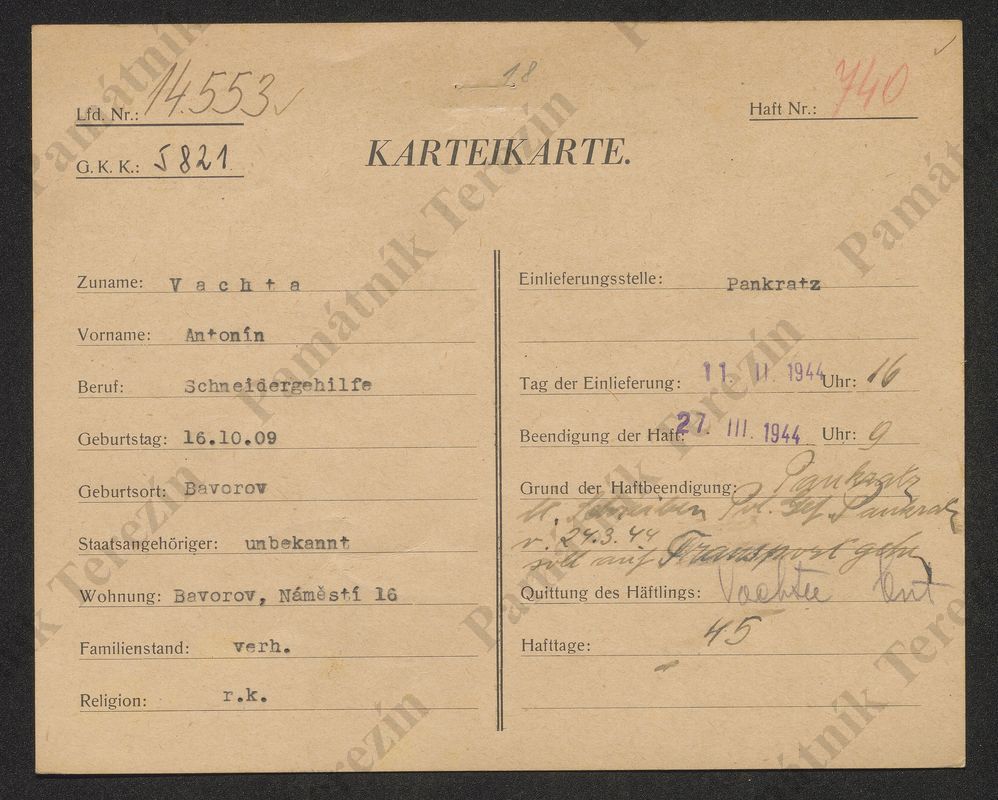 18
Lfd. Nr.: 14.553
Haft Nr.: 740
G. K. K.: 5821
KARTEIKARTE.
Zuname: Vachta
Vorname: Antonín
Beruf: Schneidergehilfe
Geburtstag: 16.10.09
Geburtsort: Bavorov
Staatsangehöriger: unbekannt
Wohnung: Bavorov, Náměstí 16
Familienstand: verh.
Religion: r.k.
Einlieferungsstelle: Pankratz
Tag der Einlieferung: 11. II. 1944 Uhr: 16
Beendigung der Haft: 27. III. 1944 Uhr: 9
Grund der Haftbeendigung: Pankratz
lt. Schreiben Pol. Gef. Pankratz
v. 24.3.44
soll auf Transport gehen
Quittung des Häftlings: Vachta Ant
Hafttage: 45
Památník Terezín
Památník Terezín
Památník Terezín
Památník Terezín